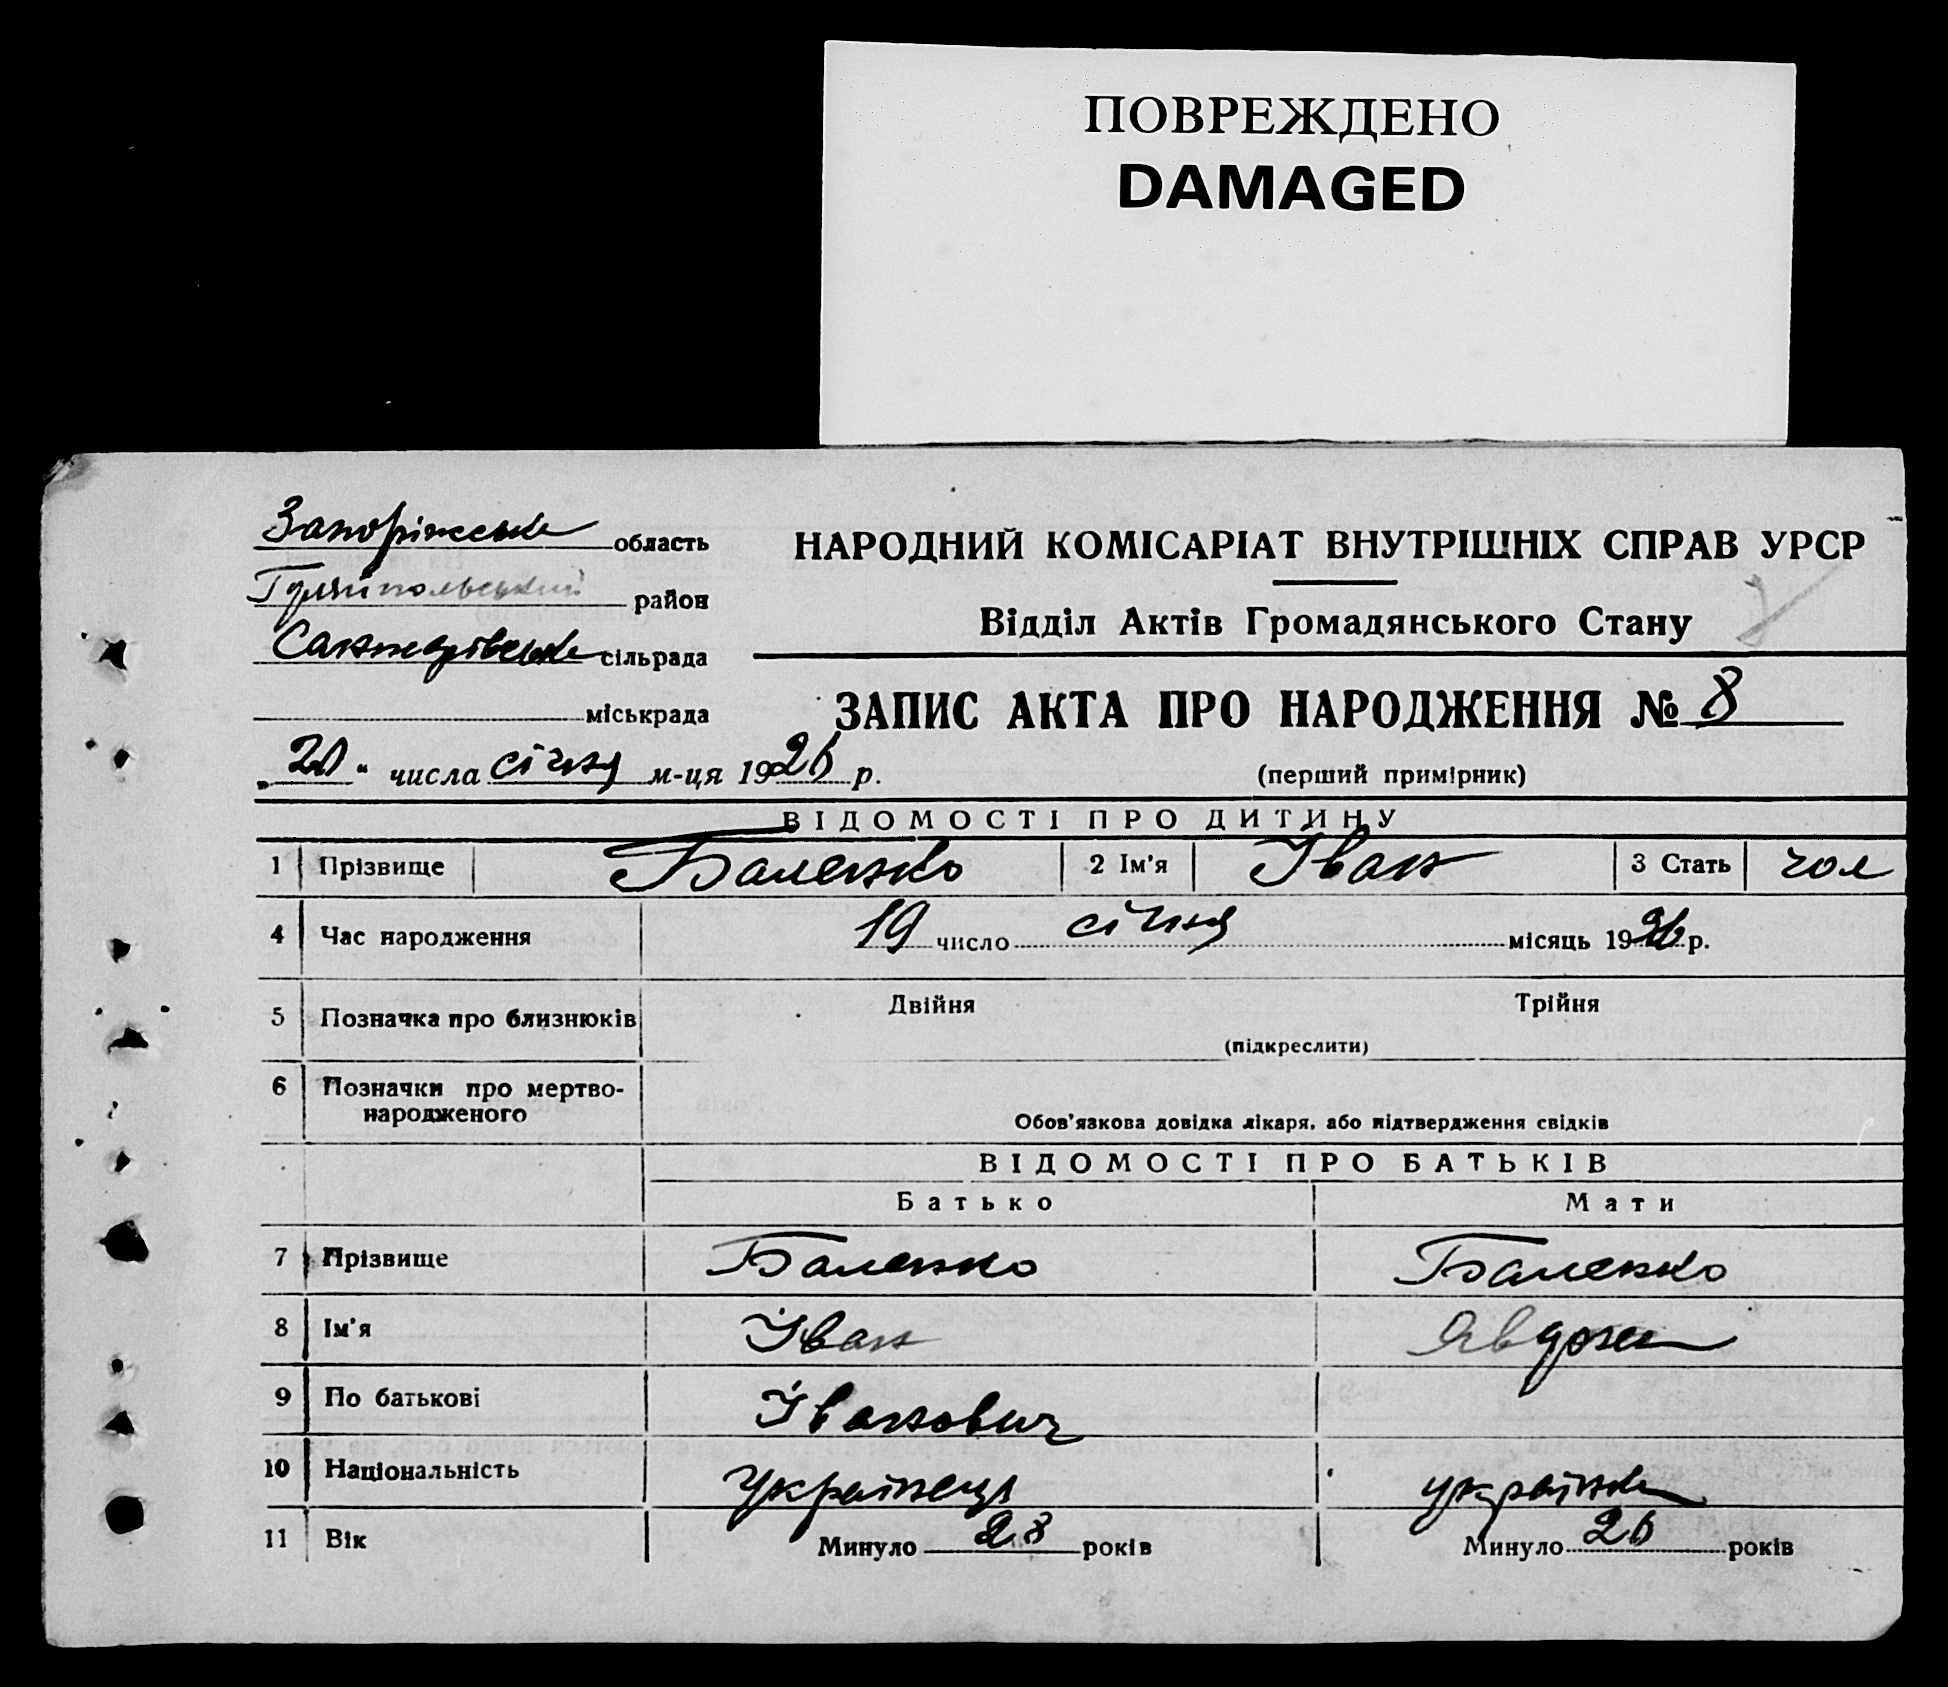 ПОВРЕЖДЕНО
DAMAGED
Запоріжська область
Гуляйпольський район
Санжарівська сільрада
міськрада
НАРОДНИЙ КОМІСАРІАТ ВНУТРІШНІХ СПРАВ УРСР
Відділ Актів Громадянського Стану
ЗАПИС АКТА ПРО НАРОДЖЕННЯ № 8
„20“ числа січня м-ця 1926 р.
(перший примірник)
ВІДОМОСТІ ПРО ДИТИНУ
1 Прізвище Баленко 2 Ім'я Іван 3 Стать чол
4 Час народження 19 число січня місяць 1926 р.
5 Позначка про близнюків Двійня Трійня
(підкреслити)
6 Позначки про мертво-
народженого
Обов'язкова довідка лікаря, або підтвердження свідків
ВІДОМОСТІ ПРО БАТЬКІВ
Батько Мати
7 Прізвище Баленко Баленко
8 Ім'я Іван Явдоха
9 По батькові Іванович
10 Національність Українець українка
11 Вік Минуло 28 років Минуло 26 років